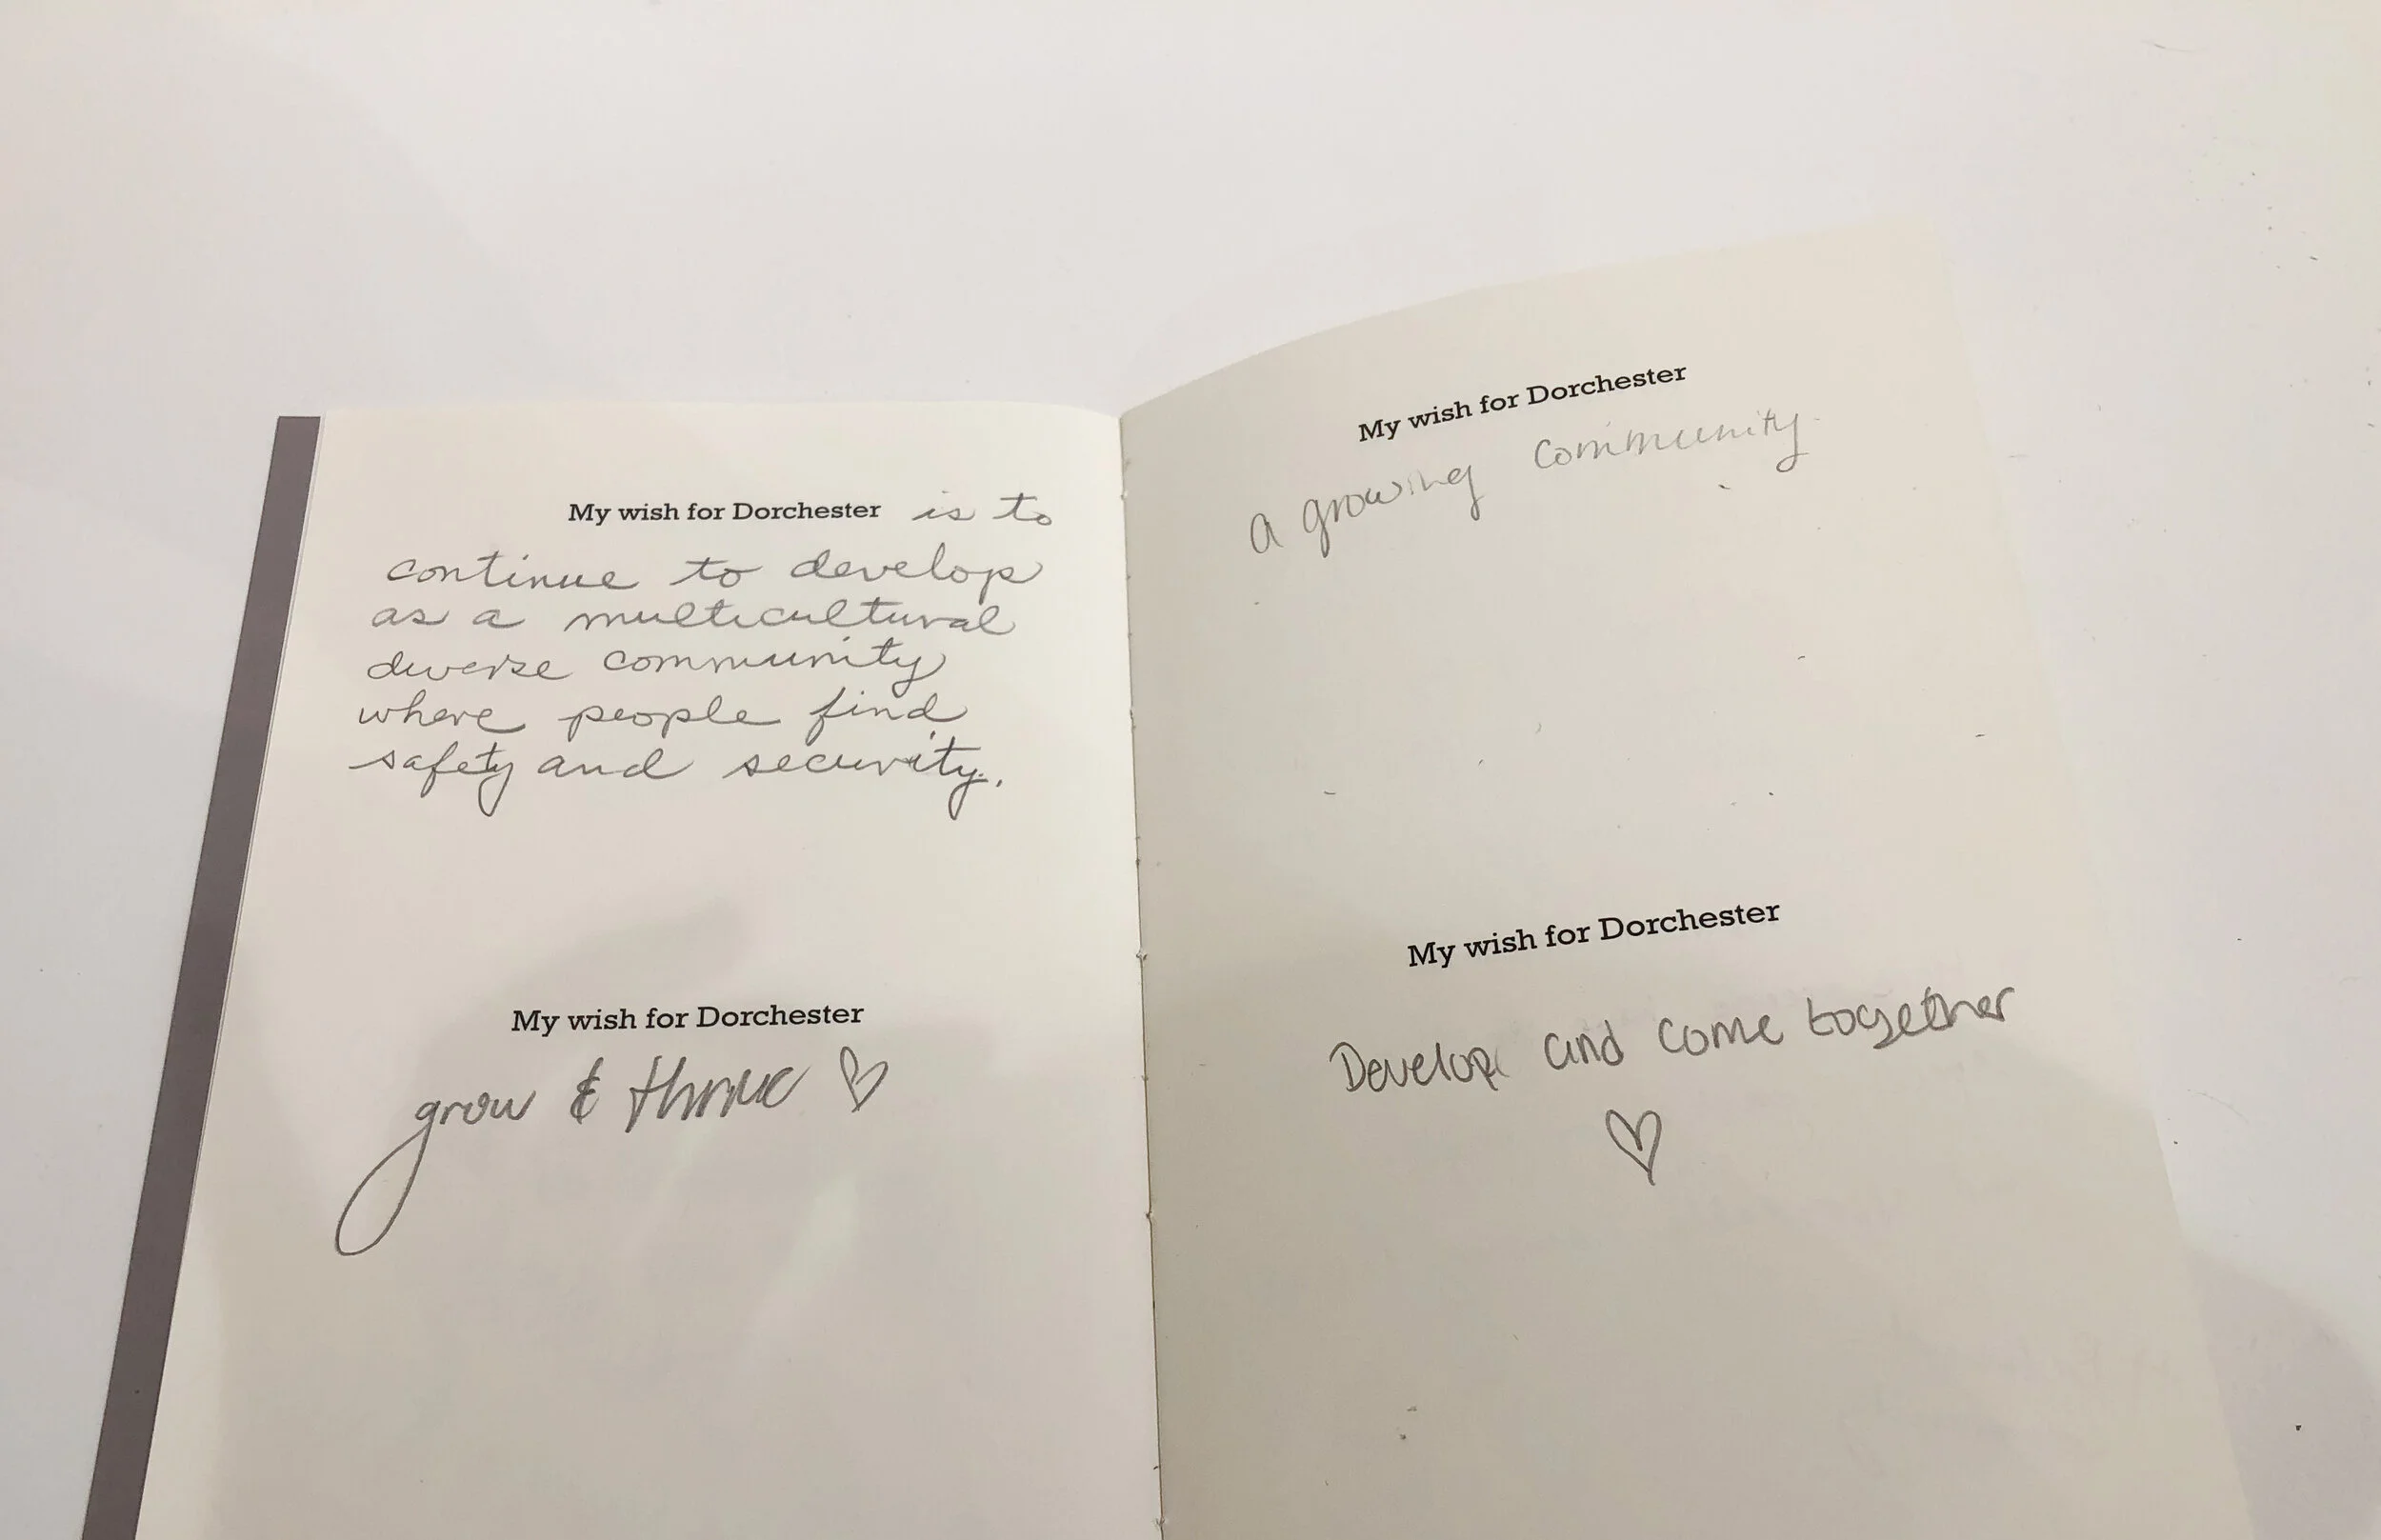 My wish for Dorchester is to
continue to develop
as a multicultural
diverse community
where people find
safety and security.
My wish for Dorchester
grow & thrive ♡
My wish for Dorchester
a growing community.
My wish for Dorchester
Develop and come together
♡